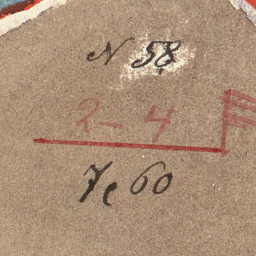 N 58
2-4 F
7c 60